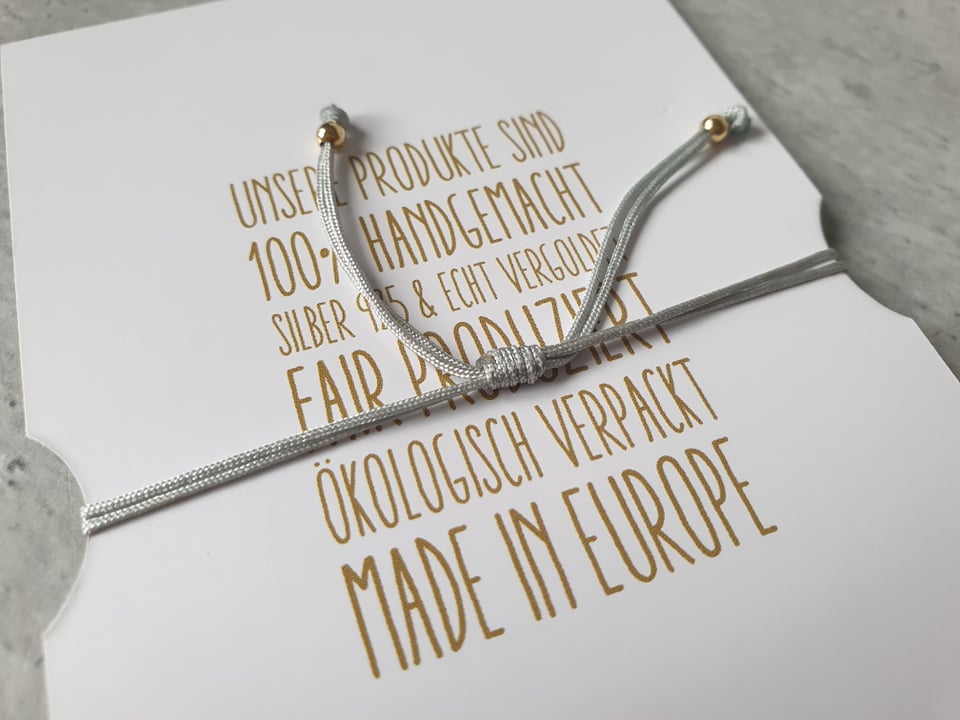 UNSERE PRODUKTE SIND
100% HANDGEMACHT
SILBER 925 & ECHT VERGOLDET
FAIR PRODUZIERT
ÖKOLOGISCH VERPACKT
MADE IN EUROPE